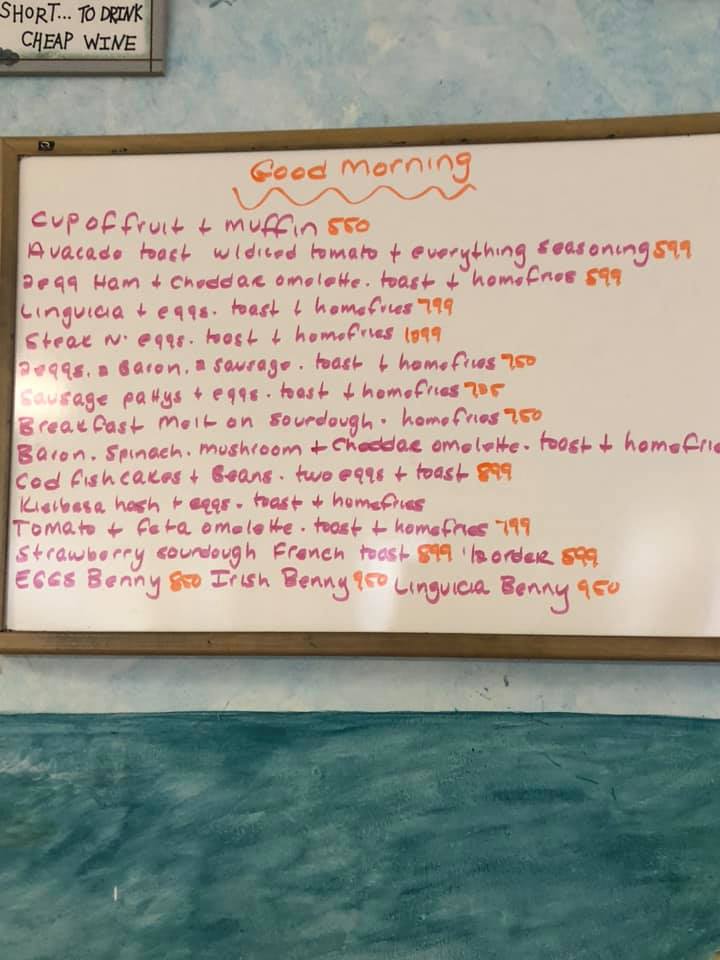 SHORT... TO DRINK
CHEAP WINE
Good Morning
Cup of fruit + muffin 550
Avacado toast w/diced tomato + everything seasoning 599
2egg Ham + Cheddar omelette. toast + homefries 599
Linguicia + eggs. toast + homefries 799
Steak N. eggs. toast + homefries 1099
2eggs. 2 Bacon. 2 sausage. toast + homefries 750
Sausage pattys + eggs. toast + homefries 705
Breakfast melt on sourdough. homefries 750
Bacon. Spinach. mushroom + Cheddar omelette. toast + homefrie
Cod fishcakes + Beans. two eggs + toast 899
Kielbasa hash + eggs. toast + homefries
Tomato + feta omelette. toast + homefries 799
Strawberry sourdough French toast 899 1/2 order 599
EGGS Benny 850 Irish Benny 950 Linguicia Benny 950